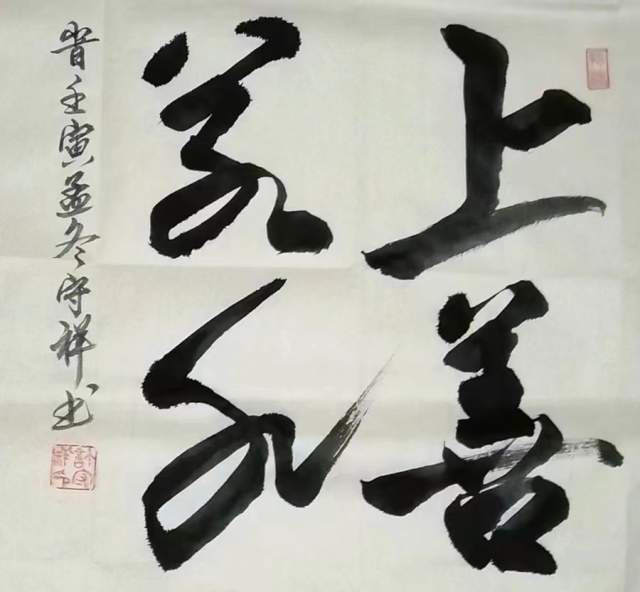 上善
若水
时壬寅孟冬守祥书